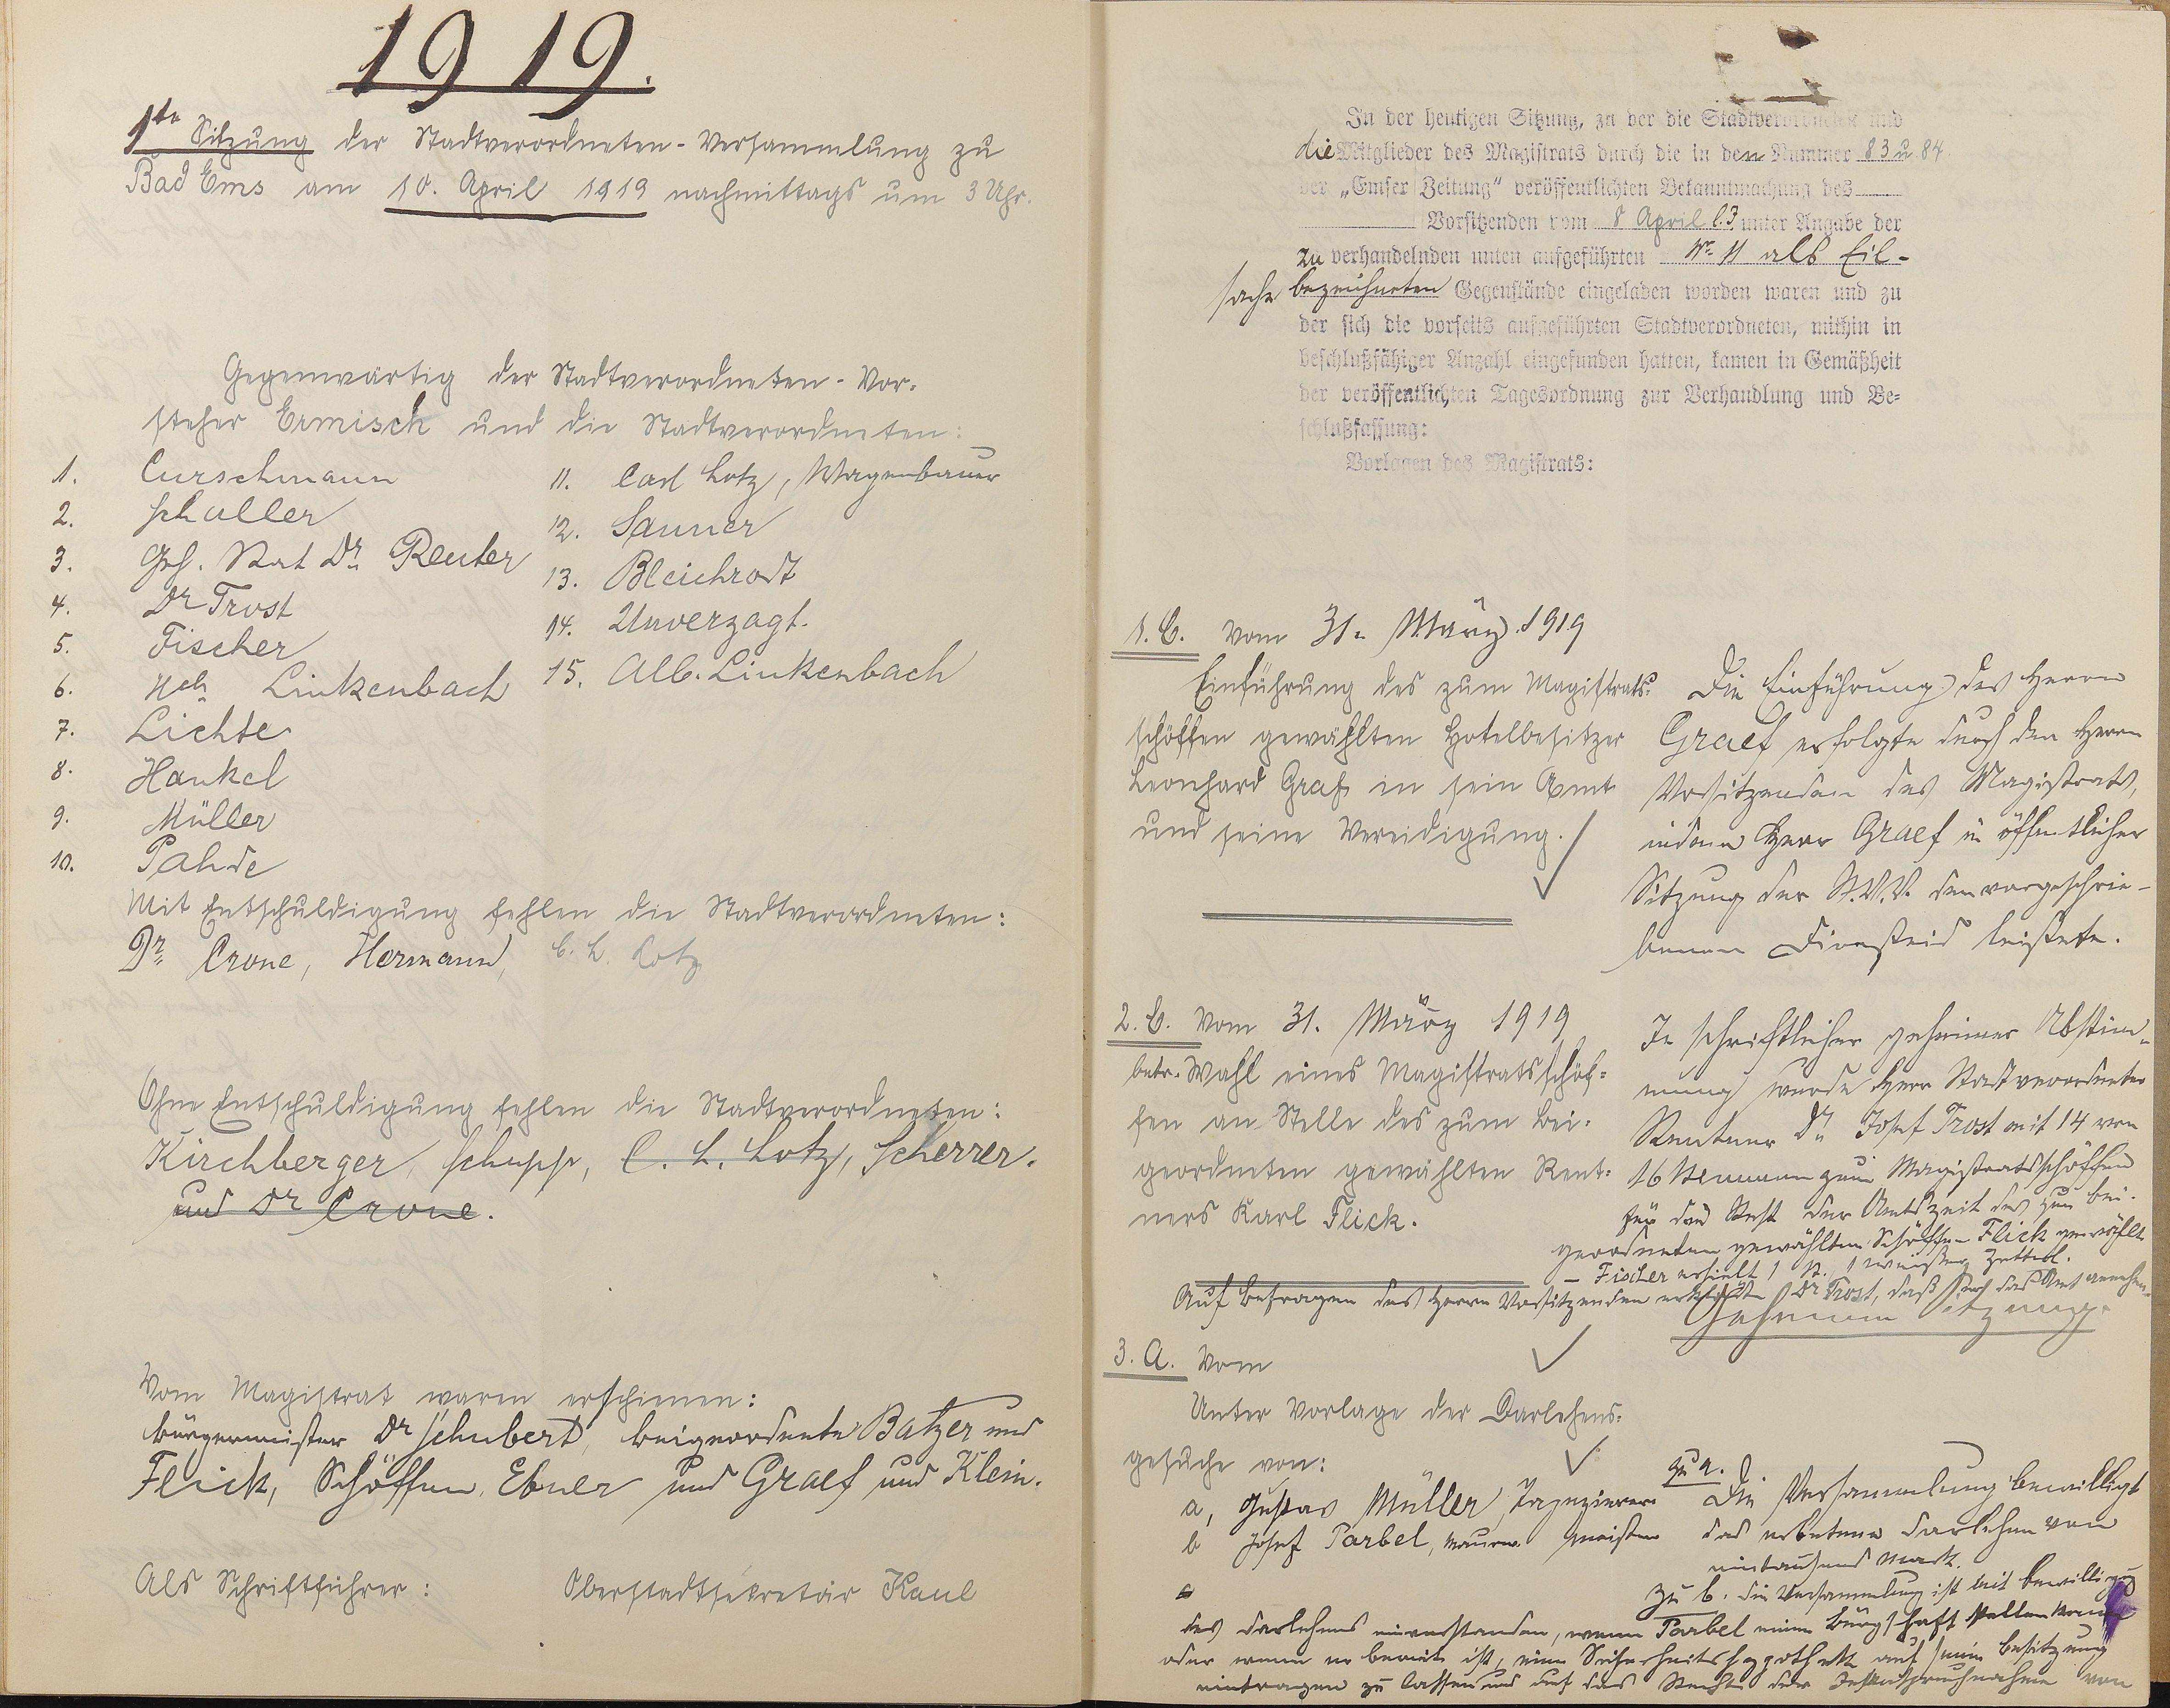 1919.
1te Sitzung der Stadtverordneten-Versammlung zu
Bad Ems am 10. April 1919 nachmittags um 3 Uhr.
Gegenwärtig der Stadtverordneten-Vor-
steher Ermisch und die Stadtverordneten:
1. Curschmann
2. Schaller
3. Geh. Rat Dr. Reuter
4. Dr Trost
5. Fischer
6. Hch Linkenbach
7. Lichte
8. Hankel
9. Müller
10. Pahde
11. Carl Lotz, Wagenbauer
12. Sauner
13. Bleichrodt
14. Unverzagt.
15. Alb. Linkenbach
Mit Entschuldigung fehlen die Stadtverordneten:
Dr. Crone, Hermann, C. L. Lotz
Ohne Entschuldigung fehlen die Stadtverordneten:
Kirchberger, Schupp, C. L. Lotz, Scherrer.
und Dr Crone.
Vom Magistrat waren erschienen:
Bürgermeister Dr Schubert, Beigeordnete Batzer und
Flick, Schöffen Ebner und Graef und Klein.
Als Schriftführer: Oberstadtsekretär Kaul
In der heutigen Sitzung, zu der die Stadtverordneten und
die Mitglieder des Magistrats durch die in den Nummer 83 u. 84
der „Emser Zeitung“ veröffentlichten Bekanntmachung des
Vorsitzenden vom 8 April l. J. unter Angabe der
zu verhandelnden unten aufgeführten Nr. 11 als Eil-
sache bezeichneten Gegenstände eingeladen worden waren und zu
der sich die vorseits aufgeführten Stadtverordneten, mithin in
beschlußfähiger Anzahl eingefunden hatten, kamen in Gemäßheit
der veröffentlichten Tagesordnung zur Verhandlung und Be-
schlußfassung:
Vorlagen des Magistrats:
1. C. Vom 31. März 1919
Einführung des zum Magistrats-
schöffen gewählten Hotelbesitzer
Leonhard Graf in sein Amt
und seine Vereidigung.
Die Einführung des Herrn
Graef erfolgte durch den Herrn
Vorsitzenden des Magistrats,
indem Herr Graef in öffentlicher
Sitzung der St.V.V. den vorgeschrie-
benen Diensteid leistete.
2. C. Vom 31. März 1919
betr. Wahl eines Magistratsschöf-
fen an Stelle des zum Bei-
geordneten gewählten Rent-
ners Karl Flick.
In schriftlicher geheimer Abstim-
mung wurde Herr Stadtverordneter
Rentner Dr. Josef Trost mit 14 von
16 Stimmen zum Magistratsschöffen
für den Rest der Amtszeit des zum Bei-
geordneten gewählten Schöffen Flick gewählt.
- Fischer erhielt 1 St., 1 weißer Zettel.
Auf Befragen des Herrn Vorsitzenden erklärte Dr Trost, daß er das Amt annehme.
Geheime Sitzung.
3. A. Vom
Unter Vorlage der Darlehens-
gesuche von:
a, Gustav Müller, Tapezierer
b Josef Parbel, Maurermeister
c
zu a. Die Versammlung bewilligt
das erbetene Darlehen von
eintausend Mark.
zu b. Die Versammlung ist mit Bewilligung
des Darlehens einverstanden, wenn Parbel einen Bürgschaft stellen kann
oder wenn er bereit ist, eine Sicherheitshypothek auf seine Besitzung
eintragen zu lassen und auf das Recht der Inanspruchnahme von